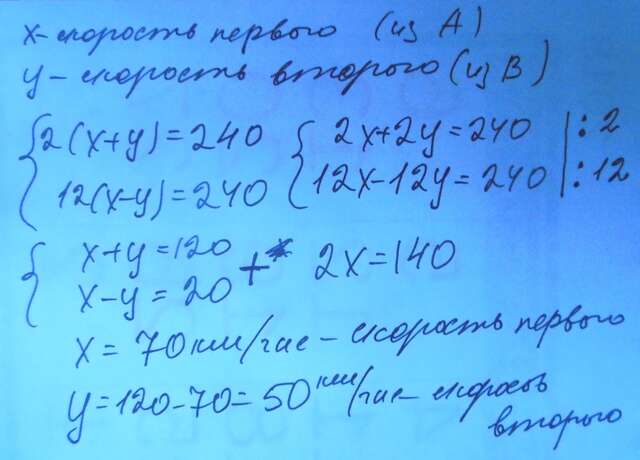 x-скорость первого (из А)
y-скорость второго (из В)
{2(x+y)=240 {2x+2y=240 |:2
12(x-y)=240 12x-12y=240 |:12
{x+y=120
x-y=20 + 2x=140
x=70км/час-скорость первого
y=120-70=50км/час-скорость
второго